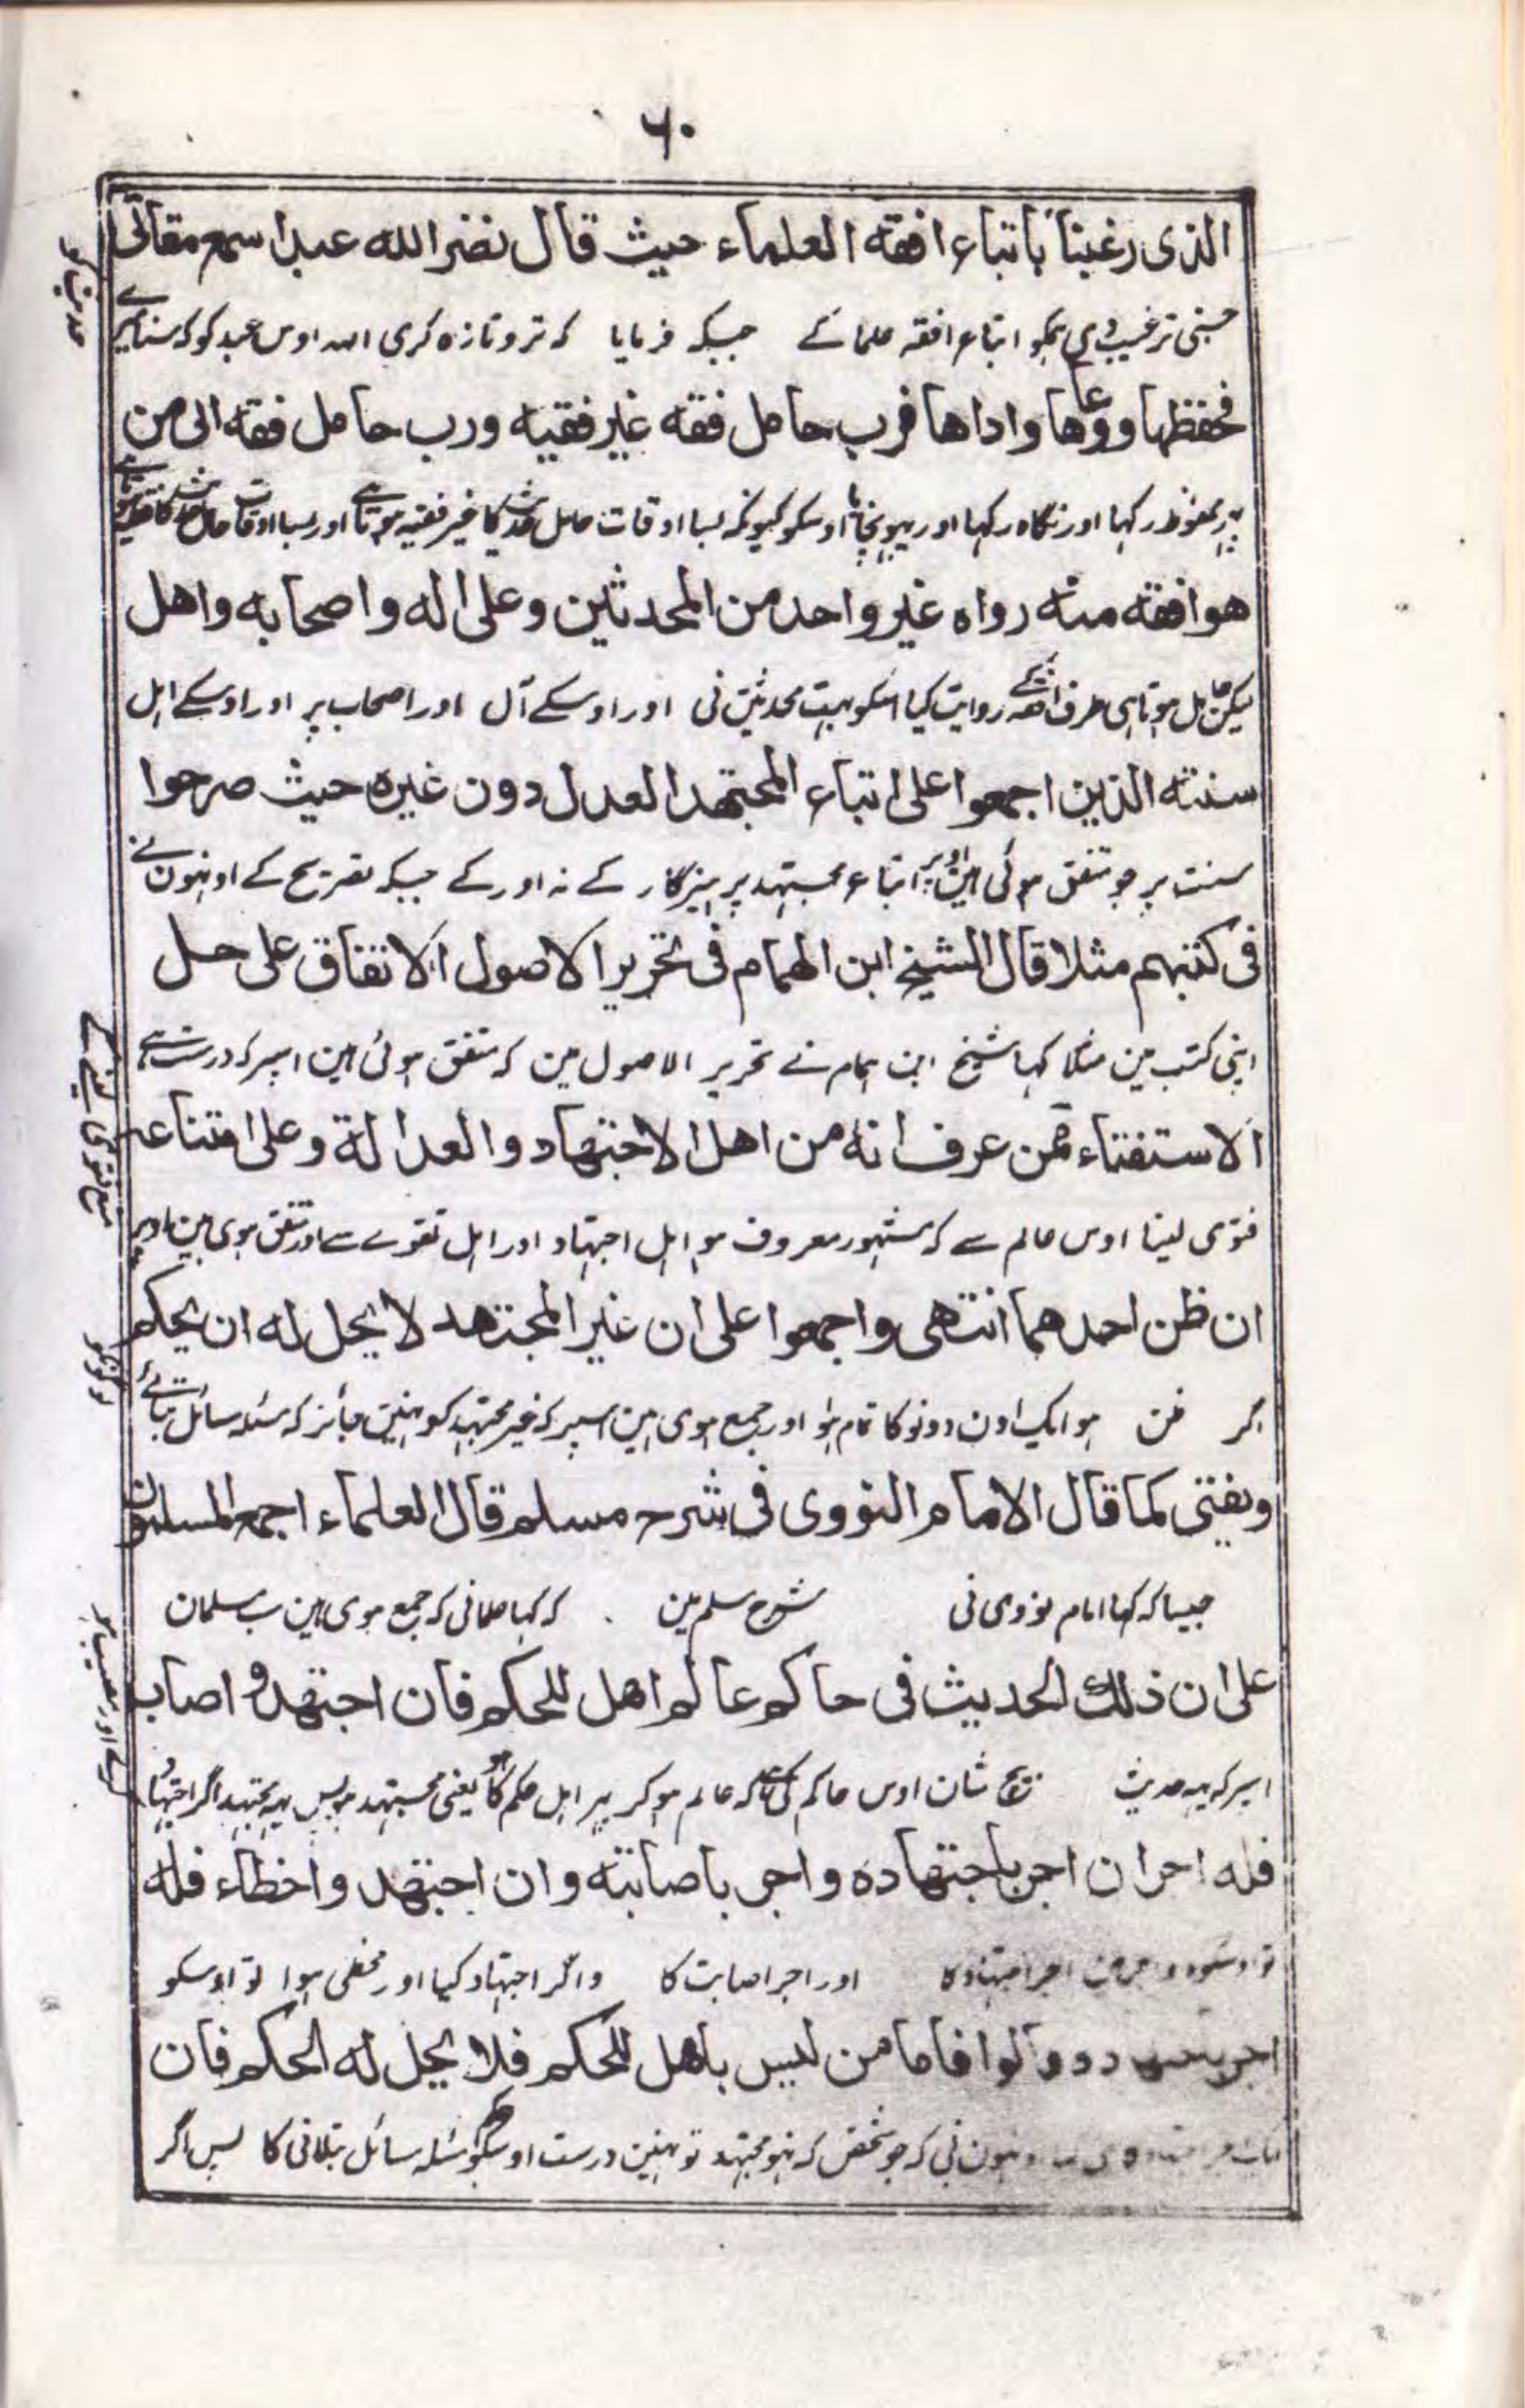 ٦٠
الذى رغبنا باتباع افقه العلماء حيث قال نضر الله عبدا سمع مقالتى
جسنی ترغیب دی ہمکو اتباع افقہ علما کے جبکہ فرمایا کہ تر و تازہ کری اللہ اوس عبد کو کہ سنا میرے
حدیث کو
فحفظها ووعاها واداها فرب حامل فقه غير فقيه ورب حامل فقه الى من
پہر محفوظ رکہا اور نگاہ رکہا اور پہونچایا اوسکو کیونکہ بسا اوقات حامل حدیث کا غیر فقیہ ہوتا ہے اور بسا اوقات حامل حدیث کا فقیہ ہوتا ہے
هو افقه منه رواه غير واحد من المحدثين وعلى اله واصحابه واهل
لیکن حامل ہوتا ہی طرف افقہ کے روایت کیا اسکو بہت محدثین نی اور اوسکے آل اور اصحاب پر اور اوسکے اہل
سنته الذين اجمعوا على اتباع المجتهد العدل دون غيره حيث صرحوا
سنت پر جو متفق ہوئی ہین اوپر اتباع مجتہد پرہیزگار کے نہ اور کے جبکہ تصریح کے اونہون نے
فى كتبهم مثلا قال الشيخ ابن الهمام فى تحرير الاصول الاتفاق على حل
اپنی کتب مین مثلا کہا شیخ ابن ہمام نے تحریر الاصول مین کہ متفق ہوئی ہین اسپر کہ درست ہے
الاستفتاء ممن عرف انه من اهل الاجتهاد والعدالة وعلى امتناعه
فتوی لینا اوس عالم سے کہ مشہور معروف ہو اہل اجتہاد اور اہل تقوے سے اور متفق ہوی ہین اوپر
منع فتوی لینے کے
ان ظن احدهما انتهى واجمعوا على ان غير المجتهد لا يحل له ان يحكم
اگر ظن ہو ایک اون دونو کا تمام ہوا اور جمع ہوی ہین اسپر کہ غیر مجتہد کو نہین جائز کہ مسئلہ سائل بتائے
لوگونکو
ويفتى كما قال الامام النووى فى شرح مسلم قال العلماء اجمع المسلمون
جیسا کہ کہا امام نووی نی شرح مسلم مین کہ کہا علمانی کہ جمع ہوی ہین سب مسلمان
على ان ذلك الحديث فى حاكم عالم اهل للحكم فان اجتهد و اصاب
اسپر کہ یہ حدیث بیچ شان اوس حاکم کی ہے کہ عالم ہو کر پہر اہل حکم کا ہو یعنی مجتہد ہو پس یہ مجتہد اگر اجتہاد
کرے اور مصیب ہو
فله اجران اجر باجتهاده واجر باصابته وان اجتهد واخطاء فله
اجر اجتہاد کا اور اجر اصابت کا واگر اجتہاد کیا اور مخطی ہوا تو اوسکو
اجر قالوا فاما من ليس باهل للحكم فلا يحل له الحكم فان
نی کہ جو شخص کہ نہو مجتہد تو نہین درست اوسکو حکم مسئلہ سائل بتلانی کا پس اگر